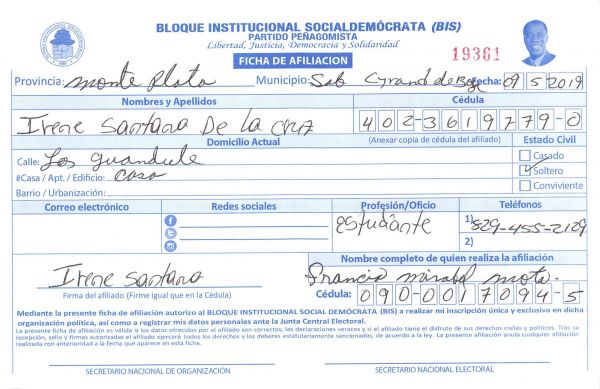 BLOQUE INSTITUCIONAL SOCIALDEMÓCRATA (BIS)
PARTIDO PEÑAGOMISTA
Libertad, Justicia, Democracia y Solidaridad
FICHA DE AFILIACION
19361
Provincia: Monte Plata Municipio: Sab Grand de Boya Fecha: 09 5 2019
Nombres y Apellidos Cédula
Irene Santana De La Cruz 402-3619779-0
Domicilio Actual (Anexar copia de cédula del afiliado) Estado Civil
Calle: Los guandule Casado
#Casa / Apt. / Edificio: casa Soltero
Barrio / Urbanización: Conviviente
Correo electrónico Redes sociales Profesión/Oficio Teléfonos
estudiante 1) 829-455-2129
2)
Nombre completo de quien realiza la afiliación
Irene Santana Francia mirabal mota.
Firma del afiliado (Firme igual que en la Cédula) Cédula: 090-0017094-5
Mediante la presente ficha de afiliación autorizo al BLOQUE INSTITUCIONAL SOCIAL DEMÓCRATA (BIS) a realizar mi inscripción única y exclusiva en dicha
organización política, así como a registrar mis datos personales ante la Junta Central Electoral.
La presente ficha de afiliación es valida si los datos ofrecidos por el afiliado son correctos, las declaraciones veraces y si el afiliado tiene el disfrute de sus derechos civiles y políticos. Tras su
recepción, sello y firmas autorizadas el afiliado ejercerá todos los derechos y los deberes estatutariamente sancionados, de acuerdo a la ley. La presente afiliación anula cualquier afiliación
realizada con anterioridad a la fecha que aparece en esta ficha.
SECRETARIO NACIONAL DE ORGANIZACIÓN SECRETARIO NACIONAL ELECTORAL